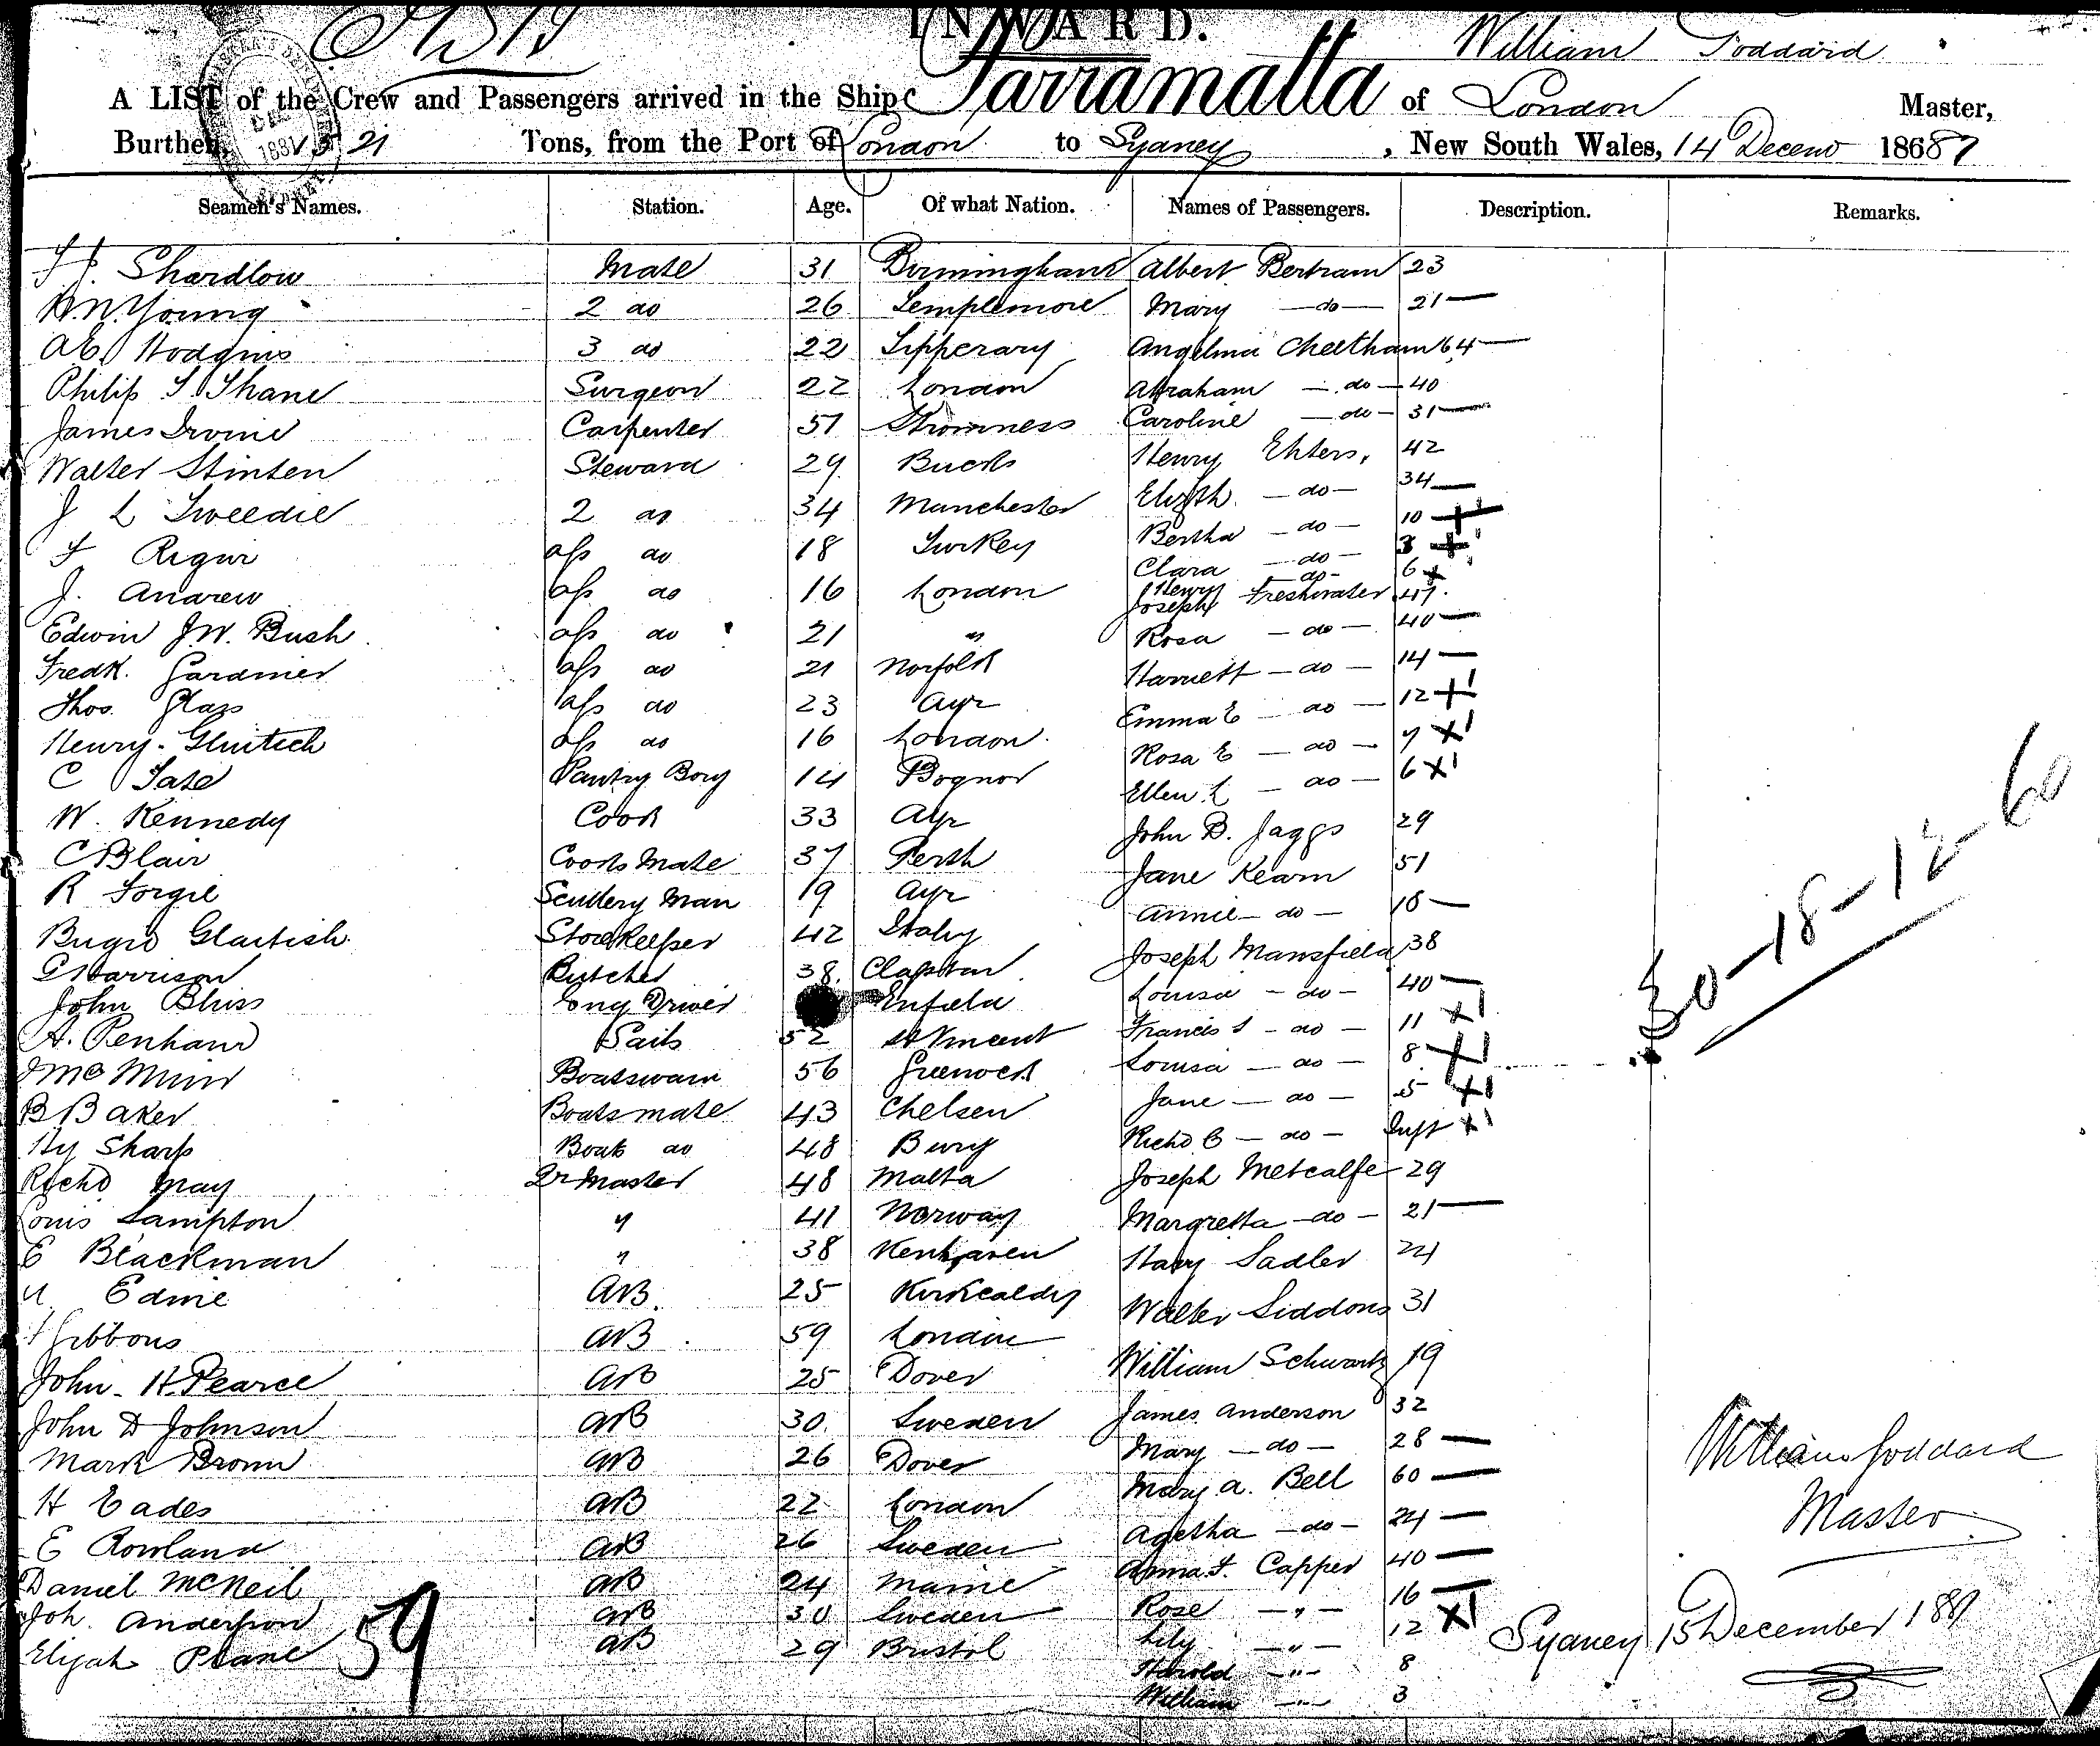 INWARD.
William Goddard
A LIST of the Crew and Passengers arrived in the Ship Parramatta of London Master,
Burthen, 1521 Tons, from the Port of London to Sydney, New South Wales, 14 Decem 1887
Seamen's Names. Station. Age. Of what Nation. Names of Passengers. Description. Remarks.
Shardlow Mate 31 Birmingham Albert Bertram 23
Young 2 do 26 Templemore Mary —do— 21—
A E Hodgins 3 do 22 Tipperary Angelina Cheetham 64—
Philip S. Thane Surgeon 22 London Abraham —do— 40
James Irvine Carpenter 51 Stromness Caroline —do— 31—
Walter Stinten Steward 29 Bucks Henry Ehlers, 42
J L Tweedie 2 do 34 Manchester Elizth. —do— 34—
F Rigur ass do 18 Turkey Bertha —do— 10 +
Clara —do— 8 +
J. Andrew ass do 16 London Henry —do— 6 x
Joseph Freshwater 47.
Edwin J.W. Bush ass do 21 " Rosa —do— 40—
Fredk. Gardiner ass do 21 Norfolk Harriett —do— 14—
Thos. Glass ass do 23 Ayr Emma E —do— 12 +1
Henry. ass do 16 London. Rosa E —do— 7 x1
C Tate Pantry Boy 14 Bognor Ellen L —do— 6 x1
W. Kennedy Cook 33 Ayr John B. Jaggs 29
C Blair Cooks Mate 37 Perth Jane Kearn 51
R Forgie Scullery Man 19 Ayr Annie —do— 18—
Glaitish Storekeeper 42 Italy Joseph Mansfield 38
G Harrison Butcher 38 Clapton Louisa —do— 40—
John Bliss Eng Driver Enfield Francis S —do— 11 x1
A. Penhand Sails 52 St Vincent Louisa —do— 8 +1
Muir Boatswain 56 Greenock Jane —do— 5 x1
B Baker Boats mate 43 Chelsea Richd C —do— Inft x1
Hy Sharp Boats do 48 Bury Joseph Metcalfe 29
Richd May Qr Master 48 Malta Margretta —do— 21—
Louis Sampton " 41 Norway Harry Sadler 24
E Blackman " 38 Walter Siddons 31
Edine AB. 25 Kirkcaldy William Schwartz 19
Gibbons AB. 59 London James Anderson 32
John. H. Pearce AB 25 Dover Mary —do— 28—
John D Johnson AB 30. Sweden Mary A. Bell 60—
Mark Brown AB 26 Dover Agetha —do— 24—
H Eades AB 22 London Anna F. Capper 40—
E Rowland AB 26 Sweden Rose —"— 16—
Daniel McNeil AB 24 Maine Lily —"— 12 x1
Joh. Anderson AB 30 Sweden Harold —"— 8
Elijah Plane AB 29 Bristol William —"— 3
59
30-18-12-60
William Goddard
Master
Sydney 15 December 1887